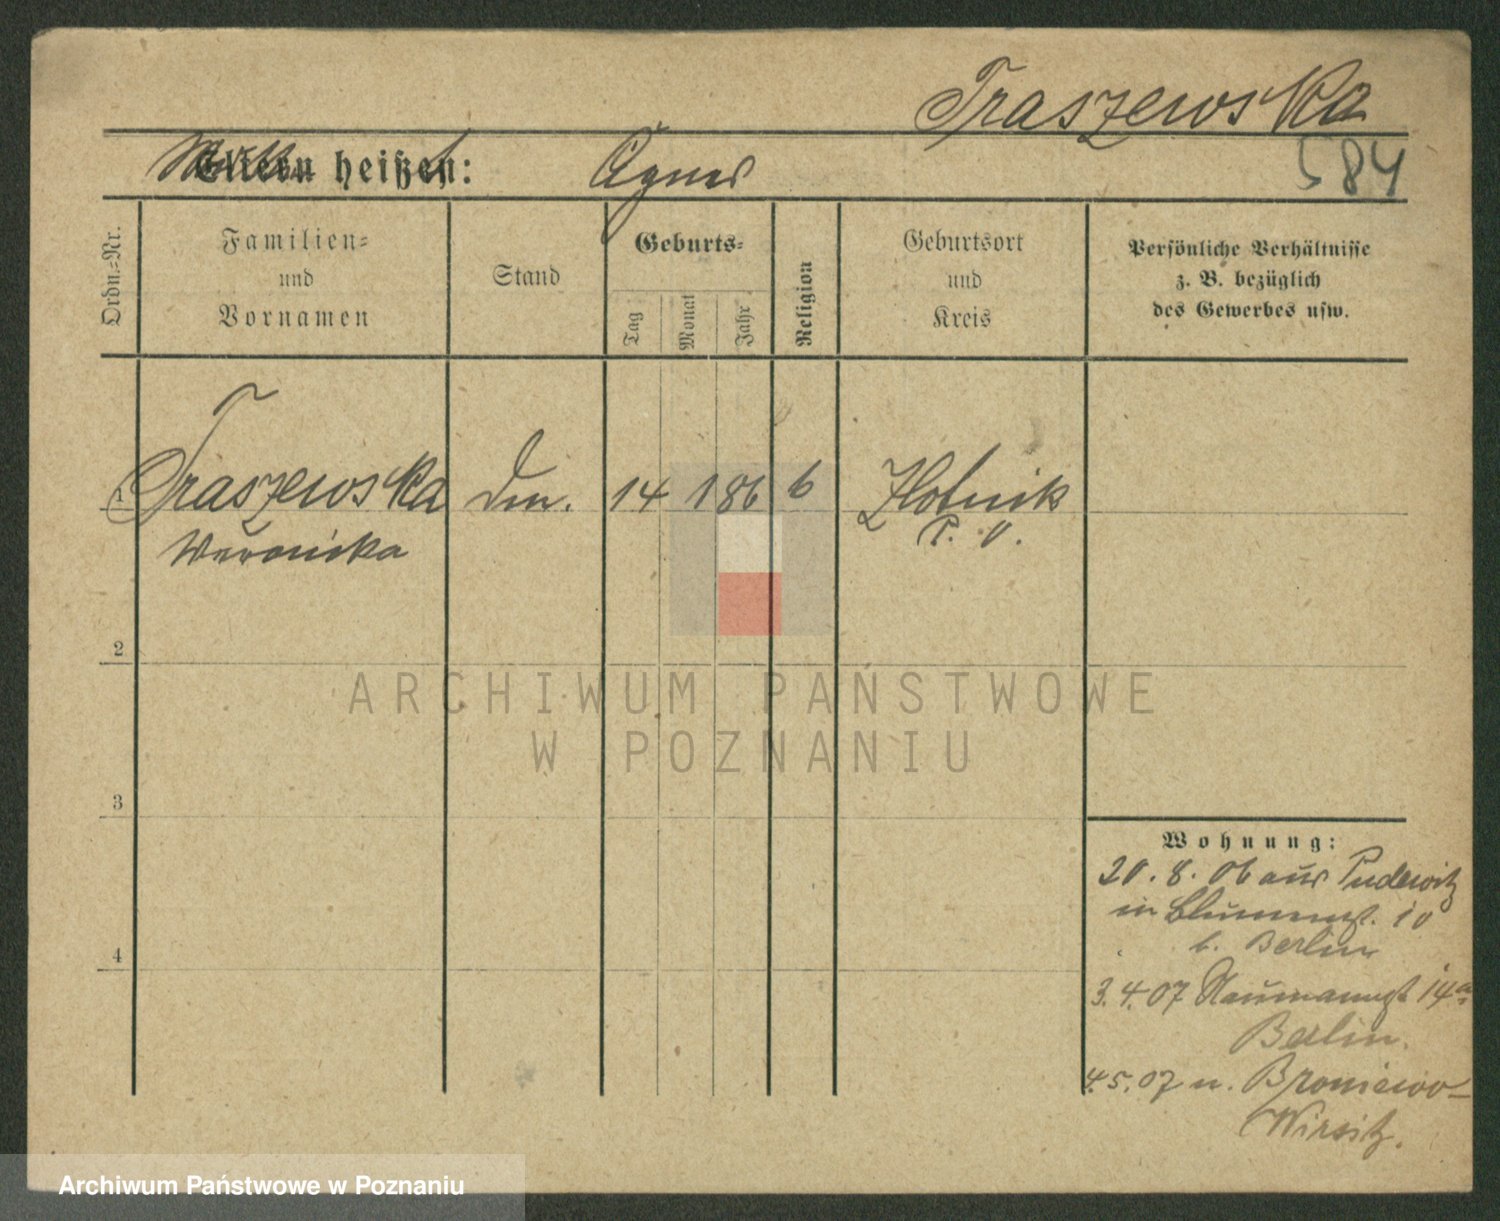 Traszewska
Eltern heißen: Agnes
584
Ordn.-Nr.
Familien-
und
Vornamen
Stand
Geburts-
Tag
Monat
Jahr
Religion
Geburtsort
und
Kreis
Persönliche Verhältnisse
z. B. bezüglich
des Gewerbes usw.
1 Traszewska 14 1 86 Zlotnik
Weronika P. O.
2
3
4
Wohnung:
20. 8. 06 aus Pudewitz
in Blumenst. 10
b. Berlin
3. 4. 07 Naumannst 14a
Berlin.
4. 5. 07 n. Broniewo-
Wirsitz.
ARCHIWUM PAŃSTWOWE
W POZNANIU
Archiwum Państwowe w Poznaniu